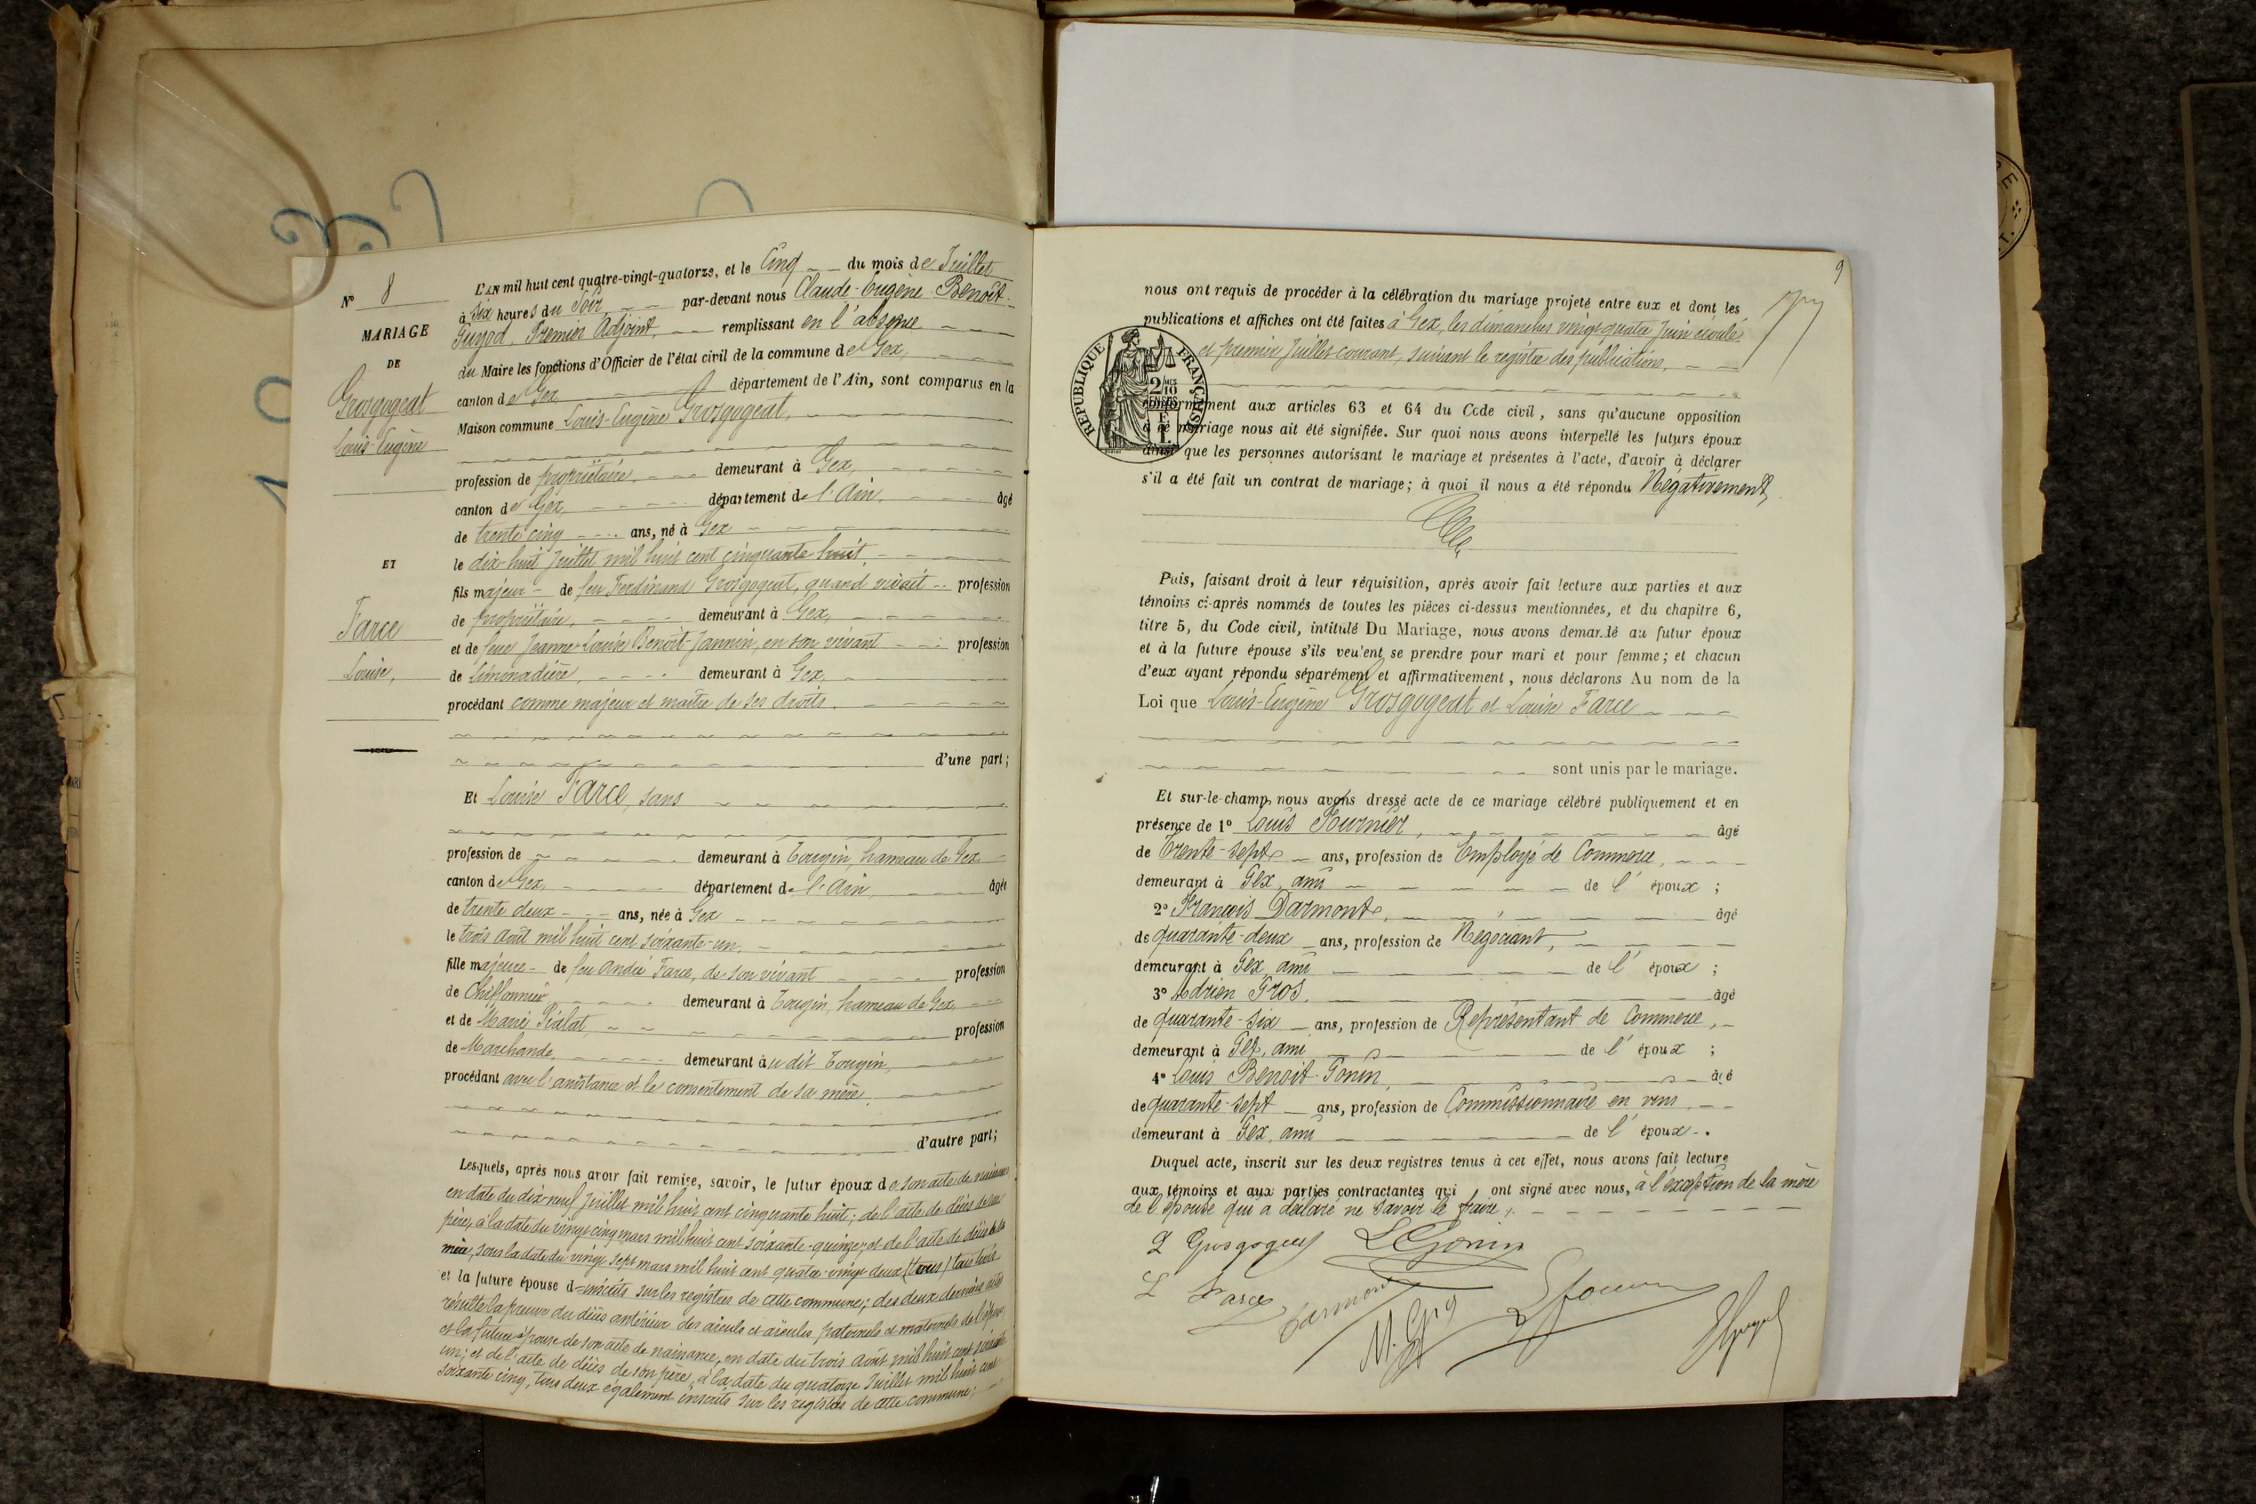 N° 8
MARIAGE
DE
Grosgogeat
Louis-Eugène
ET
Farce
Louise,
L'AN mil huit cent quatre-vingt-quatorze, et le Cinq du mois de Juillet
à Six heures du Soir par-devant nous Claude-Eugène Benoît-
Guyod, Premier Adjoint, remplissant en l'absence
du Maire les fonctions d'Officier de l'état civil de la commune de Gex,
canton de Gex département de l'Ain, sont comparus en la
Maison commune Louis-Eugène Grosgogeat,
profession de propriétaire, demeurant à Gex,
canton de Gex, département de l'Ain, âgé
de trente cinq ans, né à Gex
le dix-huit Juillet mil huit cent cinquante huit,
fils majeur de feu Ferdinand Grosgogeat, quand vivait profession
de propriétaire, demeurant à Gex,
et de feue Jeanne-Louise Benoît-Jannin, en son vivant profession
de Limonadière, demeurant à Gex,
procédant comme majeur et maître de ses droits.
d'une part;
Et Louise Farce, sans
profession de demeurant à Tougin, hameau de Gex
canton de Gex, département de l'Ain, âgée
de trente deux ans, née à Gex
le trois Août mil huit cent soixante-un,
fille majeure de feu André Farce, de son vivant profession
de Chiffonnier demeurant à Tougin, hameau de Gex,
et de Marie Pialat, profession
de Marchande, demeurant àudit Tougin,
procédant avec l'assistance et le consentement de sa mère.
d'autre part;
Lesquels, après nous avoir fait remise, savoir, le futur époux de son acte de naissance
en date du dix neuf Juillet mil huit cent cinquante huit; de l'acte de décès de son
père, à la date du vingt cinq mars mil huit cent soixante-quinze, et de l'acte de décès de sa
mère, sous la date du vingt sept mars mil huit cent quatre-vingt deux, (tous) tous trois
et la future épouse d inscrits sur les registres de cette commune; des deux derniers actes
résulte la preuve du décès antérieur des aïeuls et aïeules paternels et maternels de l'époux
et la future épouse de son acte de naissance, en date du trois Août mil huit cent soixante
un; et de l'acte de décès de son père, à la date du quatorze Juillet mil huit cent
soixante cinq, tous deux également inscrits sur les registres de cette commune;
9
nous ont requis de procéder à la célébration du mariage projeté entre eux et dont les
publications et affiches ont été faites à Gex, les dimanches vingt quatre Juin écoulé
et premier Juillet courant, suivant le registre des publications,
RÉPUBLIQUE FRANÇAISE
2/10 EN SUS
conformément aux articles 63 et 64 du Code civil, sans qu'aucune opposition
à ce mariage nous ait été signifiée. Sur quoi nous avons interpellé les futurs époux
ainsi que les personnes autorisant le mariage et présentes à l'acte, d'avoir à déclarer
s'il a été fait un contrat de mariage; à quoi il nous a été répondu Négativement,
Puis, faisant droit à leur réquisition, après avoir fait lecture aux parties et aux
témoins ci-après nommés de toutes les pièces ci-dessus mentionnées, et du chapitre 6,
titre 5, du Code civil, intitulé Du Mariage, nous avons demandé au futur époux
et à la future épouse s'ils veulent se prendre pour mari et pour femme; et chacun
d'eux ayant répondu séparément et affirmativement, nous déclarons Au nom de la
Loi que Louis-Eugène Grosgogeat et Louise Farce
sont unis par le mariage.
Et sur-le-champ nous avons dressé acte de ce mariage célébré publiquement et en
présence de 1° Louis Fournier, âgé
de Trente-sept ans, profession de Employé de Commerce,
demeurant à Gex, ami de l'époux ;
2° François Darmont, âgé
de quarante-deux ans, profession de Négociant,
demeurant à Gex, ami de l'époux ;
3° Adrien Gros, âgé
de quarante-six ans, profession de Représentant de Commerce,
demeurant à Gex, ami de l'époux ;
4° Louis Benoit-Gonin, âgé
de quarante-sept ans, profession de Commissionnaire en vins
demeurant à Gex, ami de l'époux.
Duquel acte, inscrit sur les deux registres tenus à cet effet, nous avons fait lecture
aux témoins et aux parties contractantes qui ont signé avec nous, à l'exception de la mère
de l'épouse qui a déclaré ne savoir le faire.
L Grosgogeat LGonin
L Farce Darmont